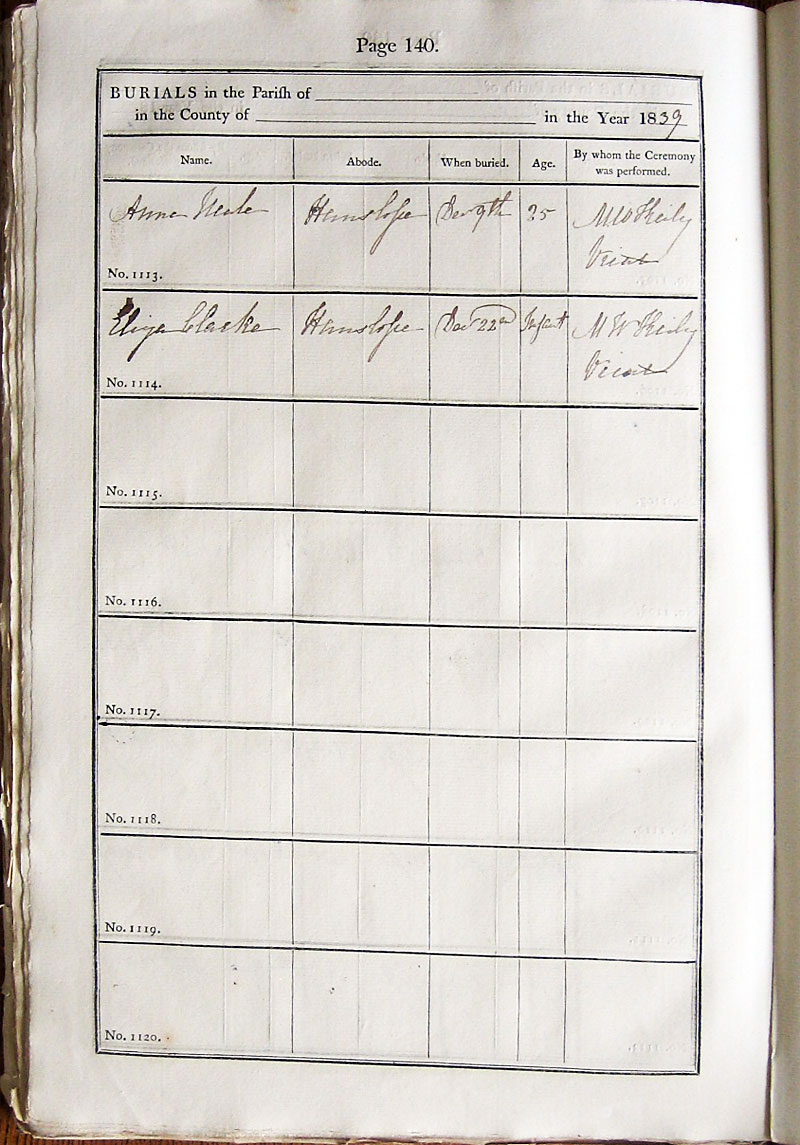 Page 140.
BURIALS in the Parish of
in the County of in the Year 1839
Name. Abode. When buried. Age. By whom the Ceremony was performed.
Anne Neale Hanslope Decr 9th 25 M W
Vicar
No. 1113.
Eliza Clarke Hanslope Decr 22nd Infant M W
Vicar
No. 1114.
No. 1115.
No. 1116.
No. 1117.
No. 1118.
No. 1119.
No. 1120.